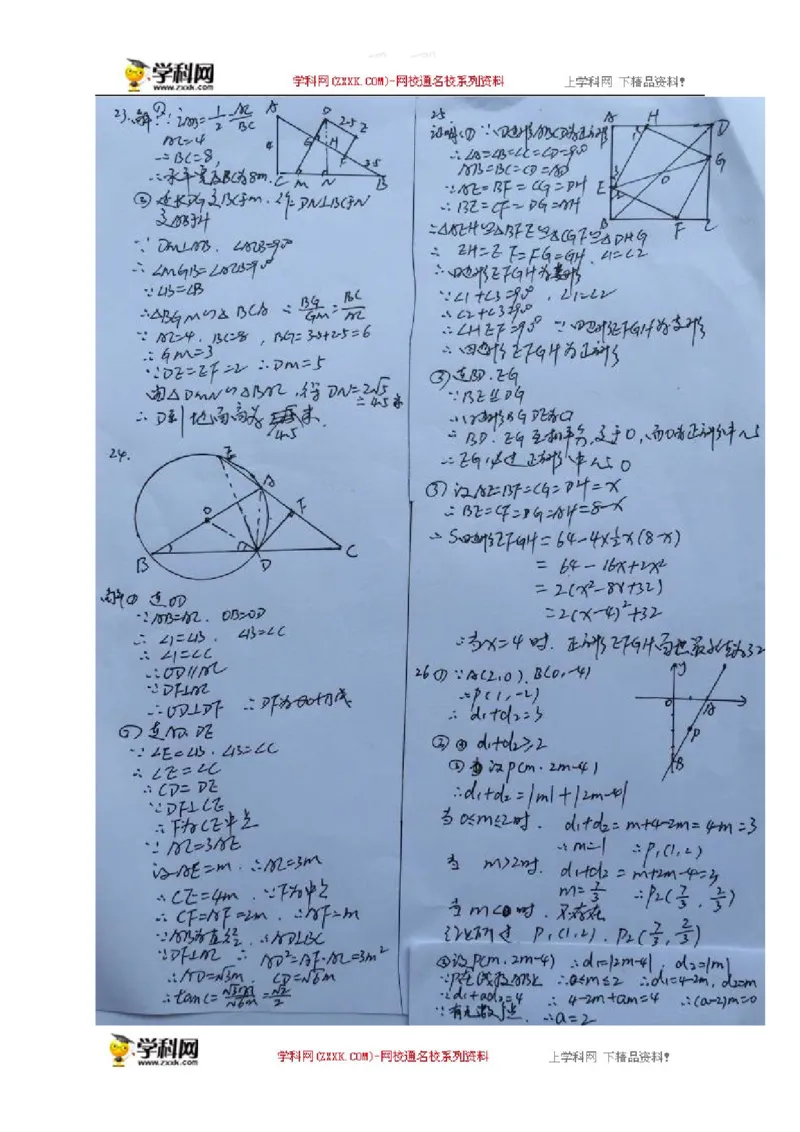 学科网
www.zxxk.com
学科网(ZXXK.COM)-网校通名校系列资料
上学科网 下精品资料!
23.解:① i_{AB}=1/2=AC/BC
AC=4
∴BC=8,
∴水平宽度BC为8m.
② 延长DG交BC于M, 作DN⊥BC于N
交AB于H
∵ DM⊥AB, ∠ACB=90°
∴ ∠MGB=∠ACB=90°
∵∠B=∠B
∴△BGM∽△BCA ∴ BG/GM=BC/AC
∵ AC=4, BC=8, BG=3.5+2.5=6
∴ GM=3
∵DE=EF=2 ∴DM=5
由△DMN∽△BAC, 得DN=2√5
≐4.5米
∴ D到地面高为
4.5
米.
A
D
2.5
E
G
H
F
3.5
4
C
M
N
B
24.
E
A
O
F
B
D
C
解① 连OD
∵AB=AC, OB=OD
∴ ∠1=∠B, ∠B=∠C
∴ ∠1=∠C
∴OD∥AC
∵DF⊥AC
∴OD⊥DF ∴DF为⊙O切线
② 连AD, DE
∵∠E=∠B, ∠B=∠C
∴ ∠E=∠C
∴CD=DE
∵DF⊥CE
∴F为CE中点
∵ AC=3AE
设AE=m, ∴AC=3m
∴CE=4m, ∵F为中点
∴ CF=EF=2m, ∴AF=m
∵AB为直径, ∴AD⊥BC
∵DF⊥AC ∴ AD²=AF·AC=3m²
∴AD=√3m, CD=√6m
∴tanC=√3m/√6m=√2/2
25
证明:① ∵四边形ABCD为正方形
∴∠A=∠B=∠C=∠D=90°
AB=BC=CD=AD
∵AE=BF=CG=DH
∴BE=CF=DG=AH
∴△AEH≌△BFE≌△CGF≌△DHG
∴ EH=EF=FG=GH, ∠1=∠2
∴四边形EFGH为菱形
∵∠1+∠3=90°, ∠1=∠2
∴∠2+∠3=90°
∴∠HEF=90° ∵四边形EFGH为菱形
∴四边形EFGH为正方形
A
H
D
1
G
3
E
2
O
B
F
C
② 连BD, EG
∵BE∥DG
∴四边形BGDE为▱
∴BD, EG互相平分, 交于O, 而O为正方形中心
∴EG必过正方形中心O
③ 设AE=BF=CG=DH=x
∴BE=CF=DG=AH=8-x
∴S四边形EFGH=64-4×½x(8-x)
=64-16x+2x²
=2(x²-8x+32)
=2(x-4)²+32
∴当x=4时, 正方形EFGH面积最小值为32
26① ∵A(2,0), B(0,-4)
∴P(1,-2)
∴ d₁+d₂=3
y
O
A
P
B
② ① d₁+d₂≥2
② 设P(m, 2m-4)
∴d₁+d₂=|m|+|2m-4|
当0≤m≤2时, d₁+d₂=m+4-2m=4-m=3
∴m=1 ∴P₁(1,2)
当 m>2时, d₁+d₂=m+2m-4=3
m=7/3 ∴P₂(7/3, 2/3)
当m<0时, 不存在
P₁(1,2), P₂(7/3, 2/3)
③设P(m, 2m-4) ∴d₁=|2m-4|, d₂=|m|
∵P在线段AB上 ∴0≤m≤2 ∴d₁=4-2m, d₂=m
∵d₁+ad₂=4 ∴4-2m+am=4 ∴(a-2)m=0
∵有无数个点, ∴a=2
学科网
www.zxxk.com
学科网(ZXXK.COM)-网校通名校系列资料
上学科网 下精品资料!